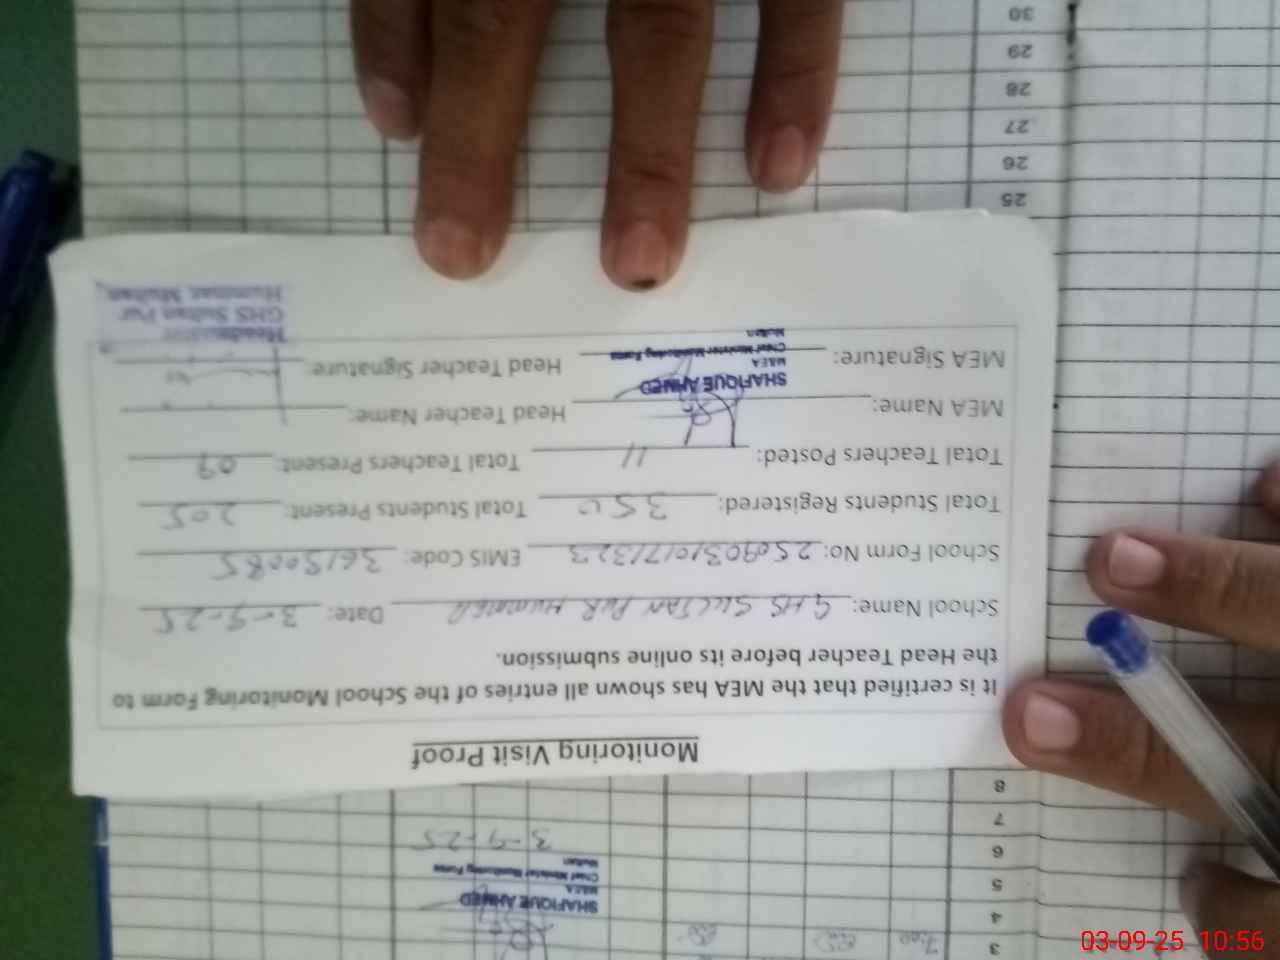 Monitoring Visit Proof
It is certified that the MEA has shown all entries of the School Monitoring Form to
the Head Teacher before its online submission.
School Name: GHS SULTAN PUR HUMMER Date: 3-9-25
School Form No: EMIS Code:
Total Students Registered: 350 Total Students Present: 205
Total Teachers Posted: 11 Total Teachers Present: 09
MEA Name: Head Teacher Name:
SHAFIQUE AHMED
MEA
Chief Minister Monitoring Force
Multan
MEA Signature: Head Teacher Signature:
Headmaster
GHS Sultan Pur
Hummar, Multan
3
4
5
6
7
8
25
26
27
28
29
30
7:00
SHAFIQUE AHMED
MEA
Chief Minister Monitoring Force
Multan
3-9-25
03-09-25 10:56